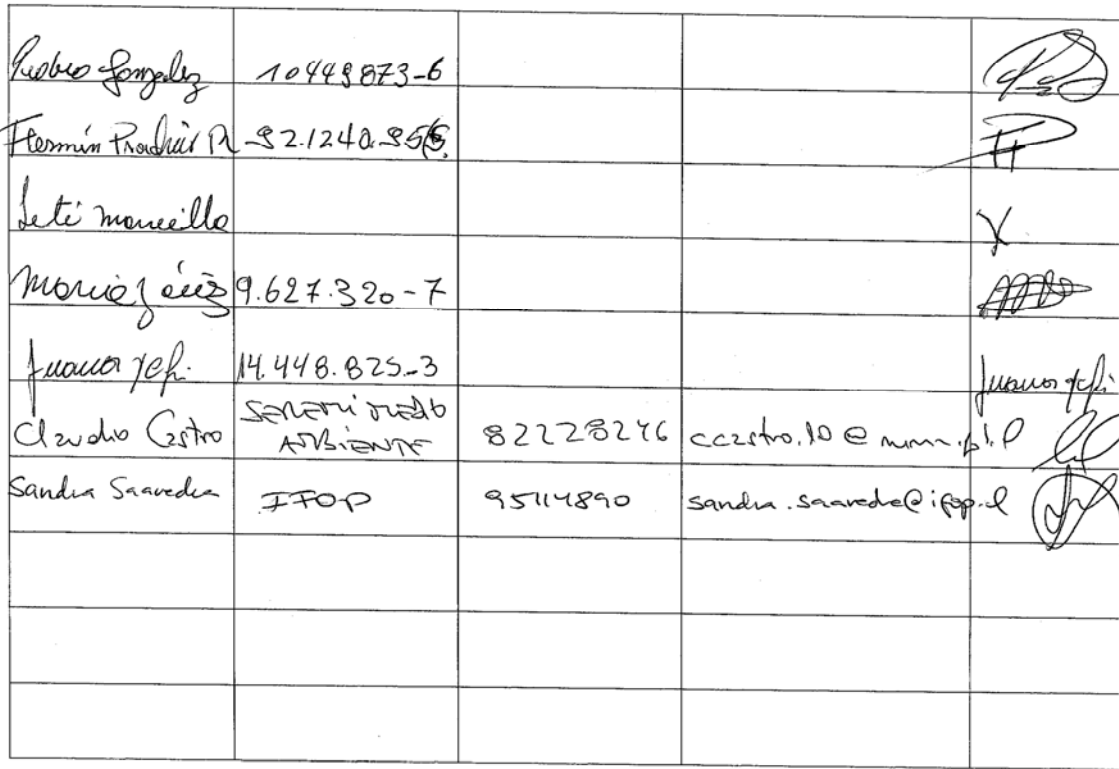 Pedro Gonzalez 10449873-6
Hermin
Leti Mancilla
Maria 9.627.320-7
Juana Yefi 14.448.825-3 Juana Yefi
Claudio Castro SEREMI MEDIO AMBIENTE 82228246 ccastro.10@
Sandra Saavedra IFOP 95114890 sandra.saavedra@ifop.cl